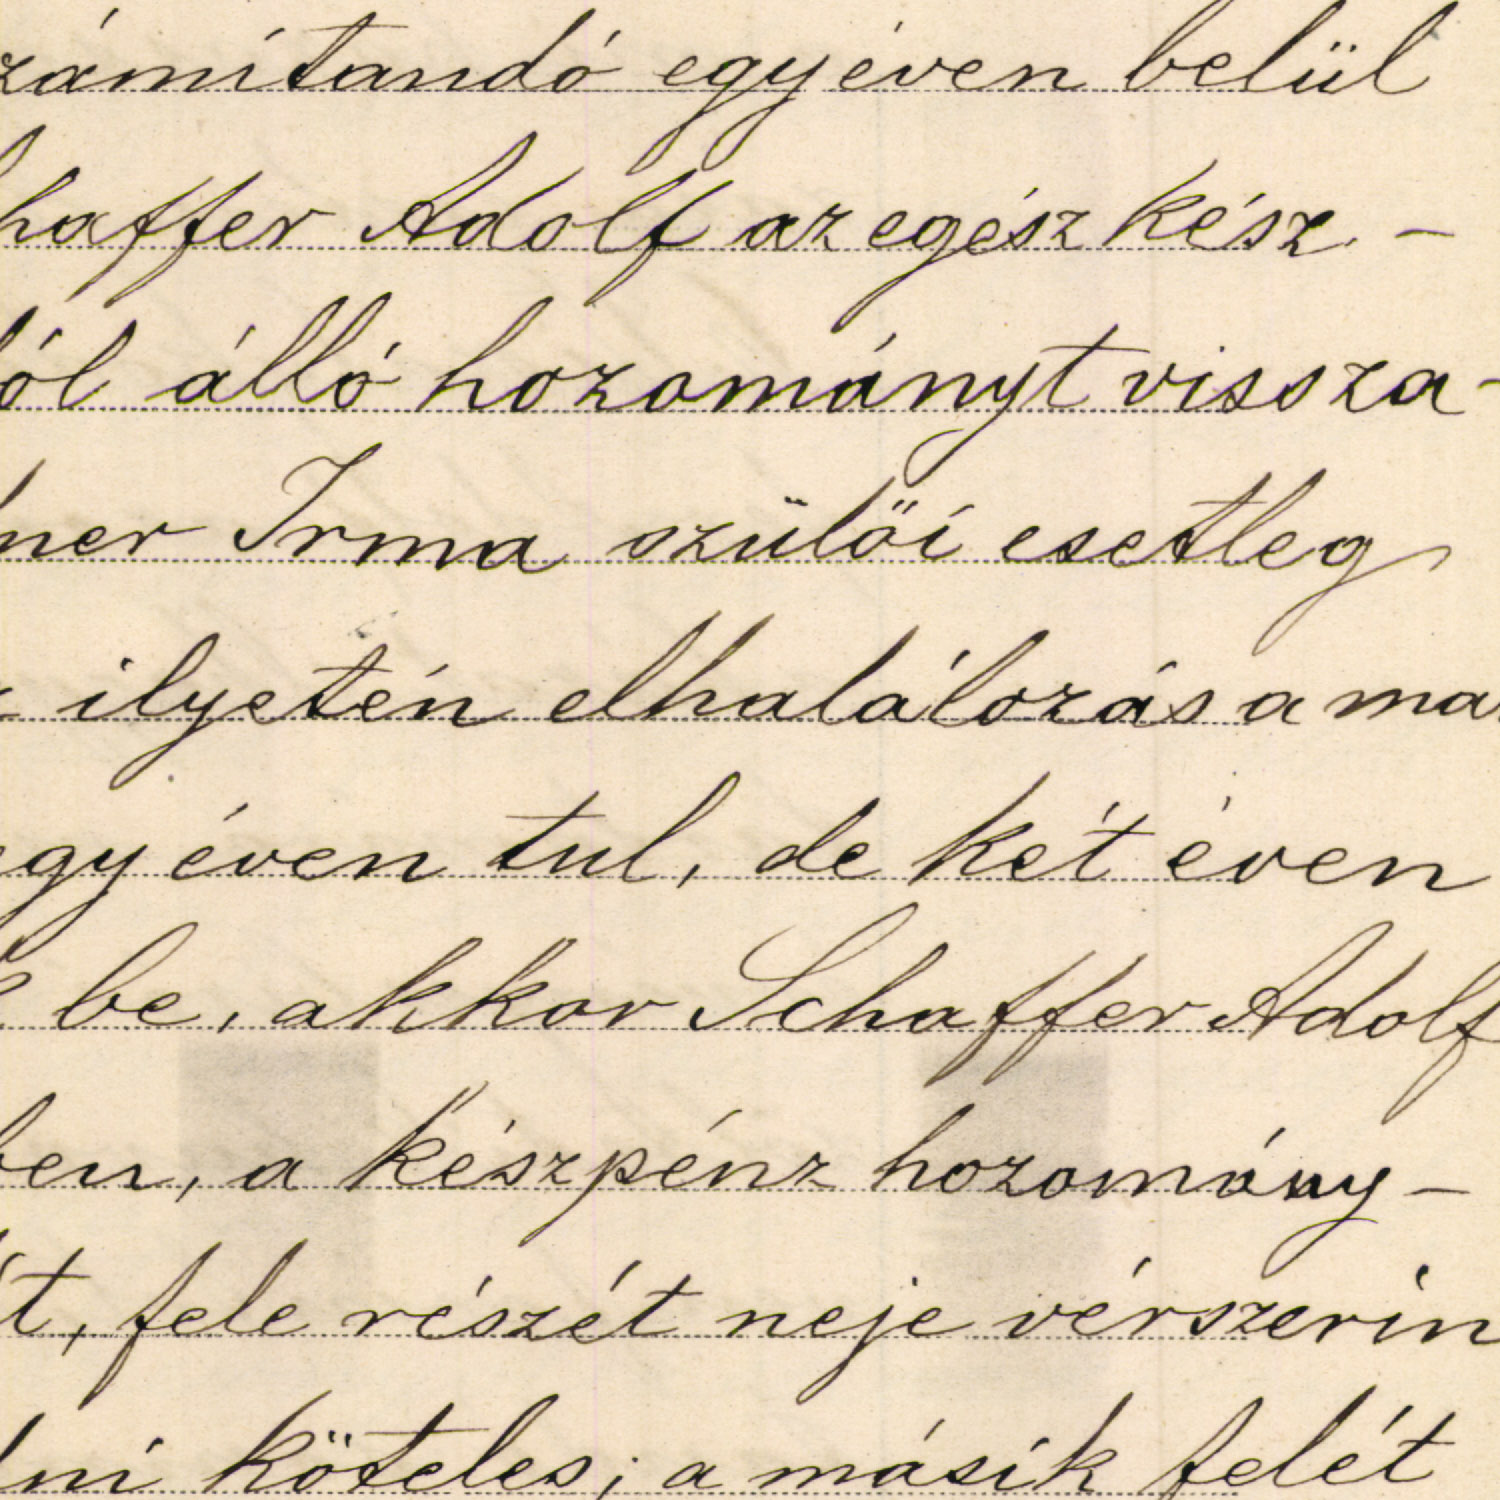 zámítandó egy éven belül
haffer Adolf az egész kész. -
ól álló hozományt vissza-
ner Irma szülöi esetleg
ilyetén elhalálozás a ma
egy éven tul, de két éven
be, akkor Schaffer Adolf
ben, a készpénz hozomány -
t, fele részét neje vérszerin
ni köteles; a másik felét